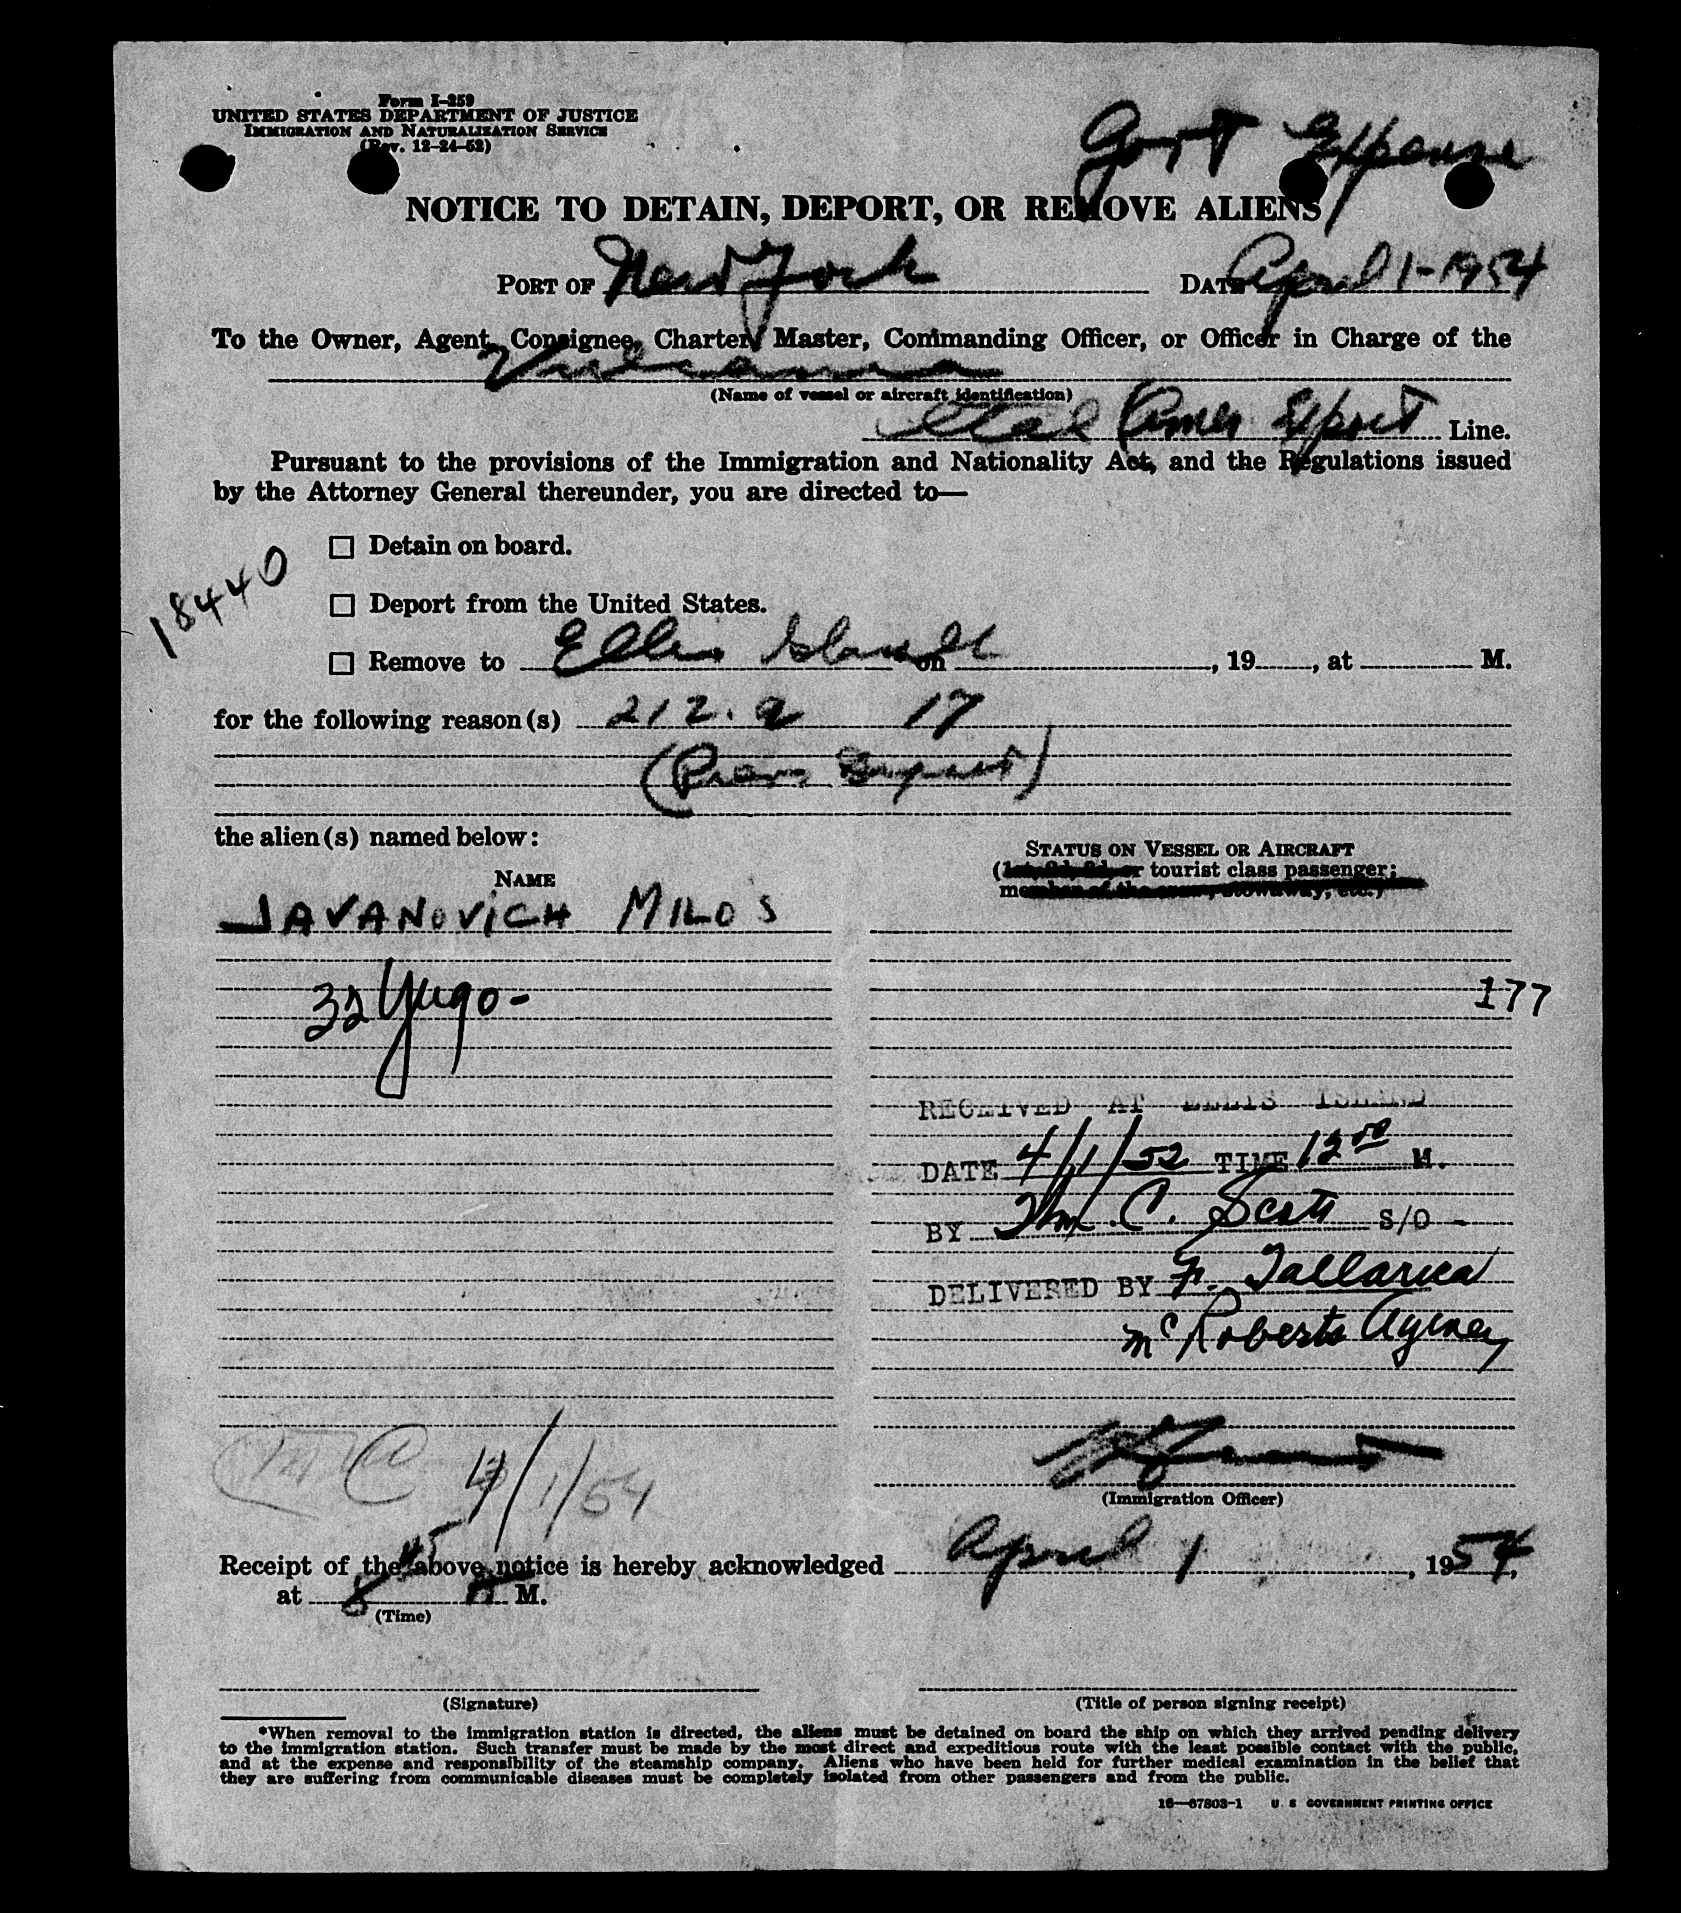 Form I-259
UNITED STATES DEPARTMENT OF JUSTICE
IMMIGRATION AND NATURALIZATION SERVICE
(Rev. 12-24-52)
Govt Expense
NOTICE TO DETAIN, DEPORT, OR REMOVE ALIENS
PORT OF New York DATE April 1-1954
To the Owner, Agent, Consignee, Charter, Master, Commanding Officer, or Officer in Charge of the
Vulcania
(Name of vessel or aircraft identification)
Ital Amer Export Line.
Pursuant to the provisions of the Immigration and Nationality Act, and the Regulations issued
by the Attorney General thereunder, you are directed to—
18440
☐ Detain on board.
☐ Deport from the United States.
☐ Remove to Ellis Island on , 19 , at M.
for the following reason(s) 212.a 17
(Prev. Deport)
the alien(s) named below:
STATUS ON VESSEL OR AIRCRAFT
(1st, 2d, 3d, or tourist class passenger;
member of the crew, stowaway, etc.)
NAME
JAVANOVICH MILOS
32 Yugo-
177
RECEIVED AT ELLIS ISLAND
DATE 4/1/52 TIME 12 00 M.
BY Wm. C. Scott S/O -
DELIVERED BY F. Tallarica
McRoberts Agency
4/1/54
(Immigration Officer)
Receipt of the above notice is hereby acknowledged April 1, 1954,
at 8 45 M.
(Time)
(Signature) (Title of person signing receipt)
*When removal to the immigration station is directed, the aliens must be detained on board the ship on which they arrived pending delivery
to the immigration station. Such transfer must be made by the most direct and expeditious route with the least possible contact with the public,
and at the expense and responsibility of the steamship company. Aliens who have been held for further medical examination in the belief that
they are suffering from communicable diseases must be completely isolated from other passengers and from the public.
16—67803-1 U. S. GOVERNMENT PRINTING OFFICE